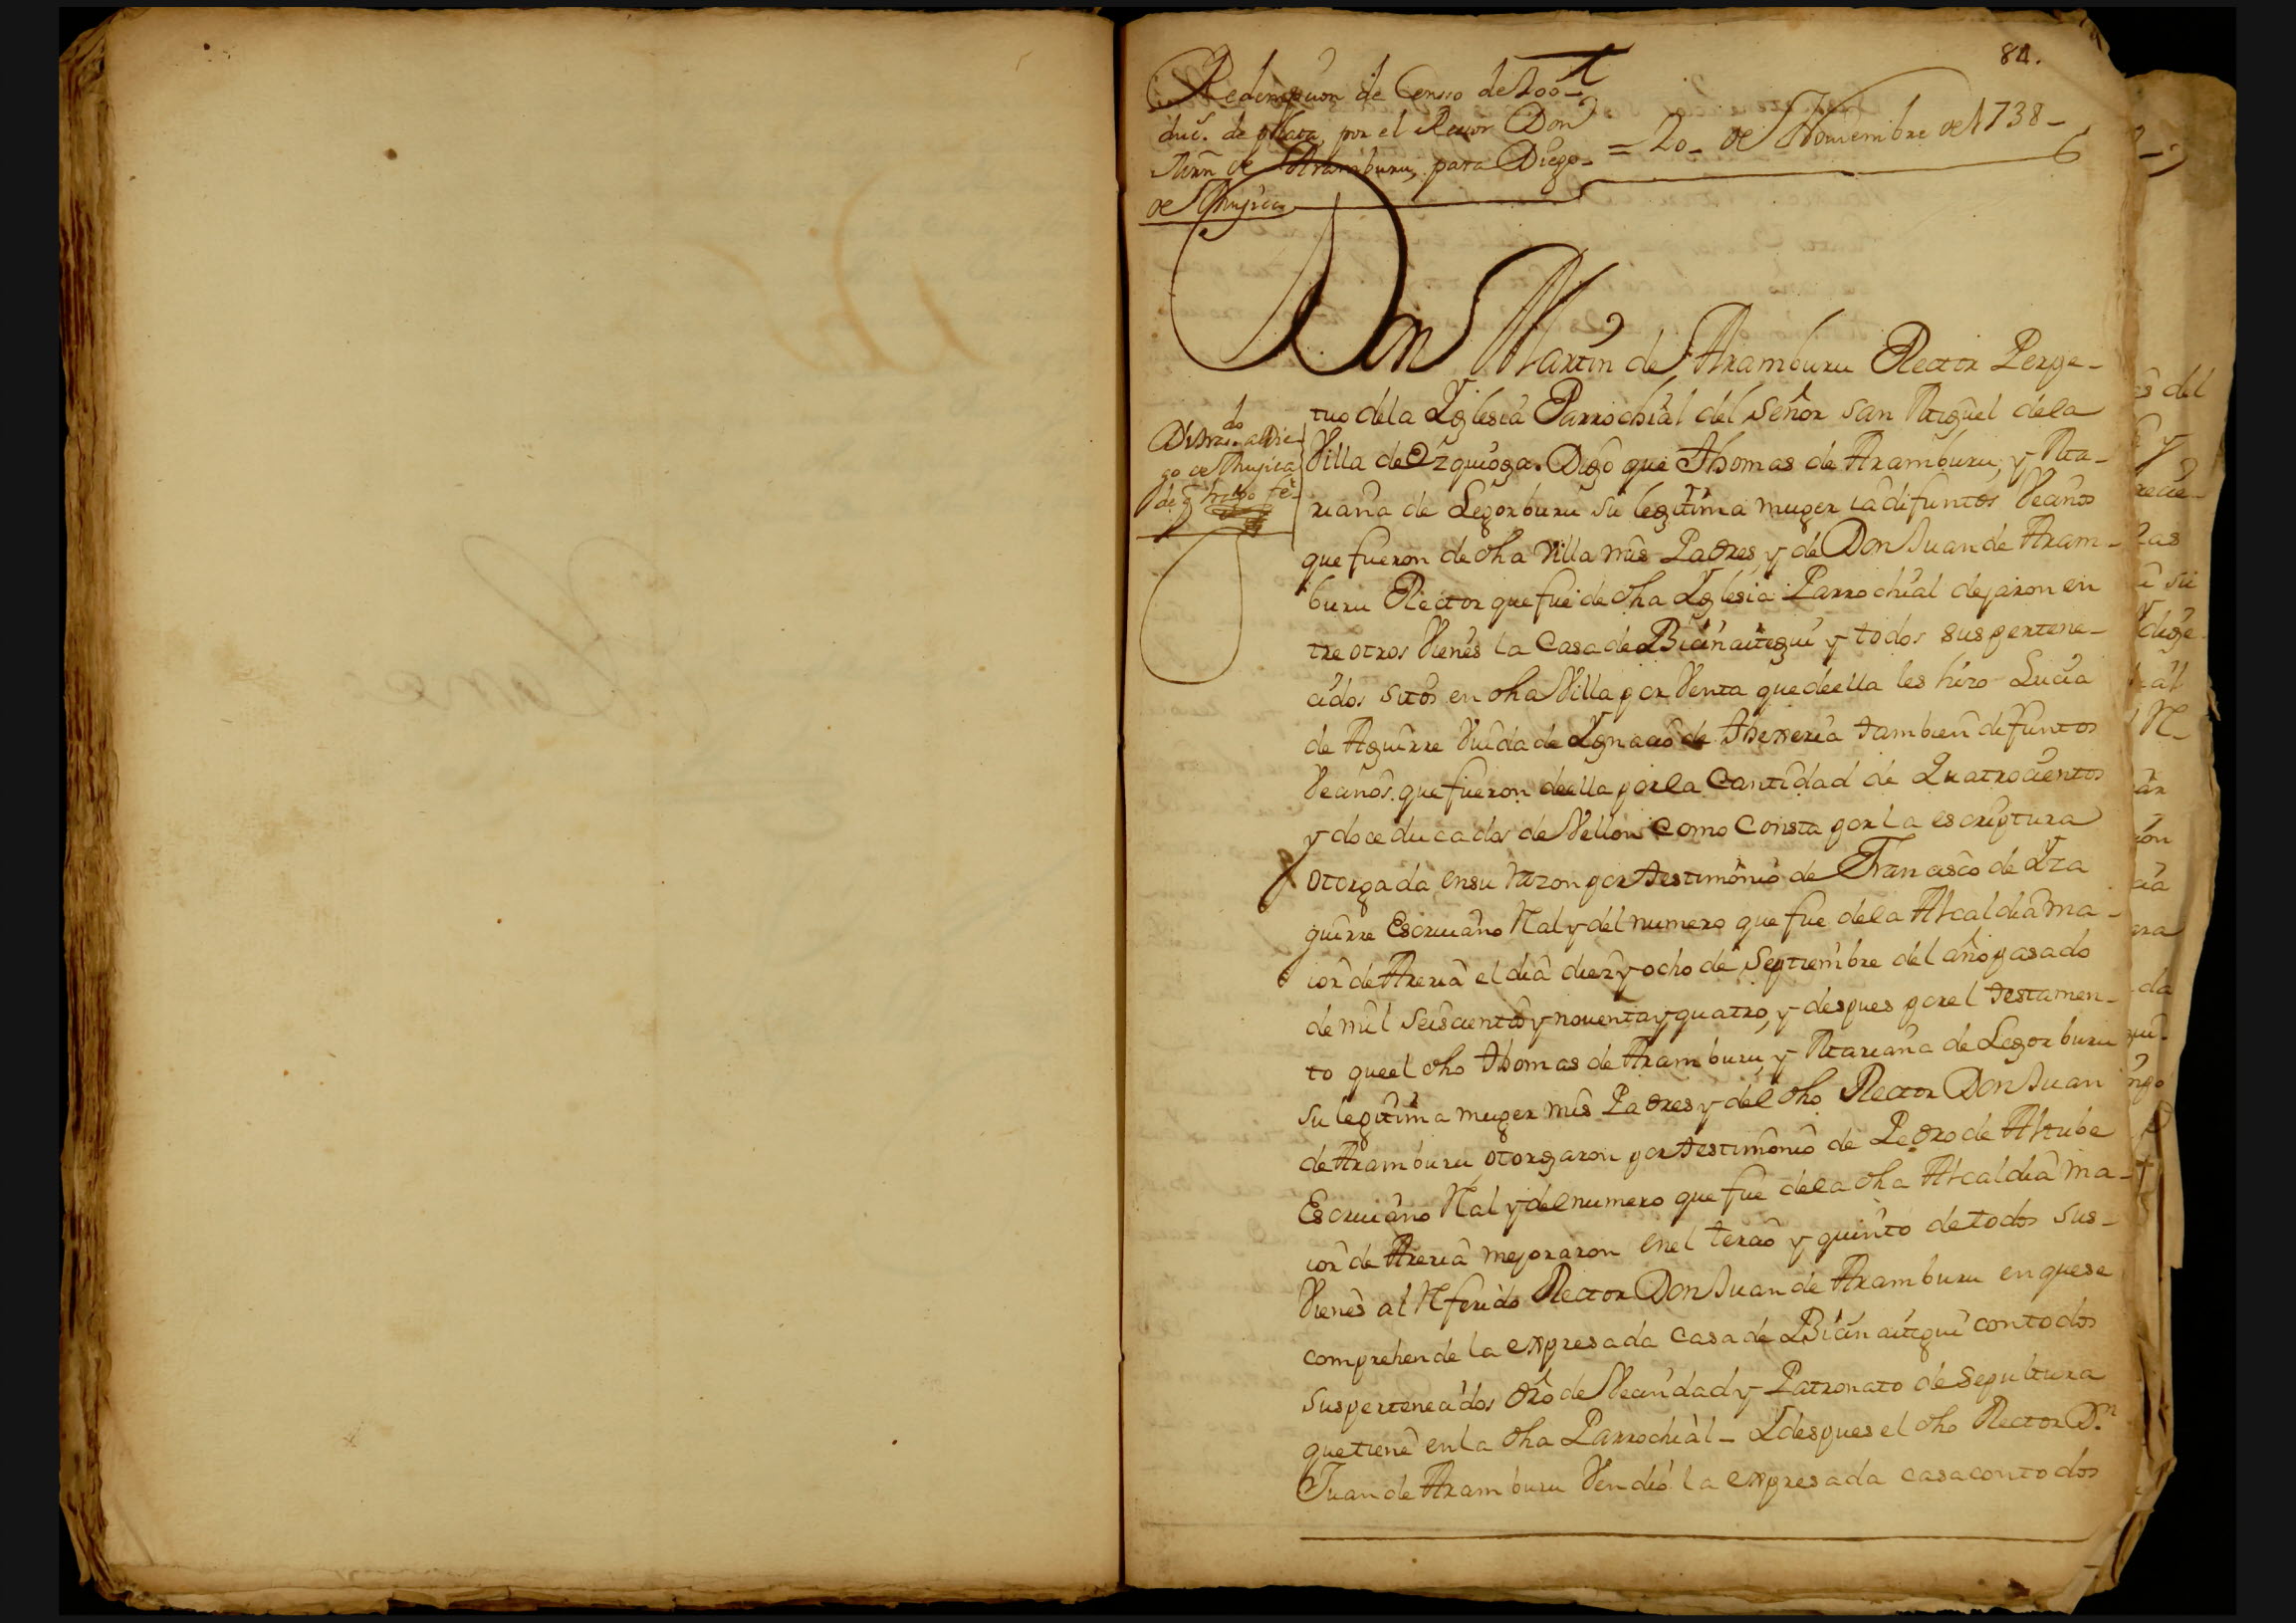 84.
Redempcion de Censo de 200
duc.s de plata, por el Rector Don
Mrn de Aramburu, para Diego
de Mugica
= 20 de Noviembre de 1738 -
Don Martin de Aramburu Rector Perpe-
tuo dela Yglesia Parrochial del Señor san Miguel dela
do
al Die-
go de Mugica
de q fe
Villa de Ezquioga. Digo que Thomas de Aramburu, y Ma-
riana de Legorburu su legitima muger ia difuntos Vecinos
que fueron de dha Villa mis Padres, y de Don Juan de Aram-
buru Rector que fue de dha Yglesia Parrochial dejaron en
tre otros Vienes la Casa de Bicinaitegui y todos sus pertene-
cidos sitos en dha Villa por Venta que de ella les hizo Lucia
de Aguirre Viuda de Ygnacio de Theereria tambien difuntos
Vecinos que fueron de ella por la Cantidad de Quatrocientos
y doce ducados de Vellon como Consta por la escriptura
otorgada en su razon por testimonio de Francisco de Yza
guirre Escriuano Ral y del numero que fue dela Alcaldia ma-
ior de Areria el dia diez y ocho de Septiembre del año pasado
de mil seiscientos y noventa y quatro, y despues por el testamen-
to que el dho Thomas de Aramburu, y Mariana de Legorburu
su legitima muger mis Padres y del dho Rector Don Juan
de Aramburu, otorgaron por testimonio de Pedro de Alzube
Escriuano Ral y del numero que fue dela dha Alcaldia ma-
ior de Areria mejoraron en el tercio y quinto de todos sus
Vienes al Referido Rector Don Juan de Aramburu en que se
comprehende la expresada casa de Bicinaitegui con todos
sus pertenecidos dro de Vecindad y Patronato de sepultura
que tiene en la dha Parrochial - Y despues el dho Rector D.n
Juan de Aramburu Vendio la expresada casa con todos